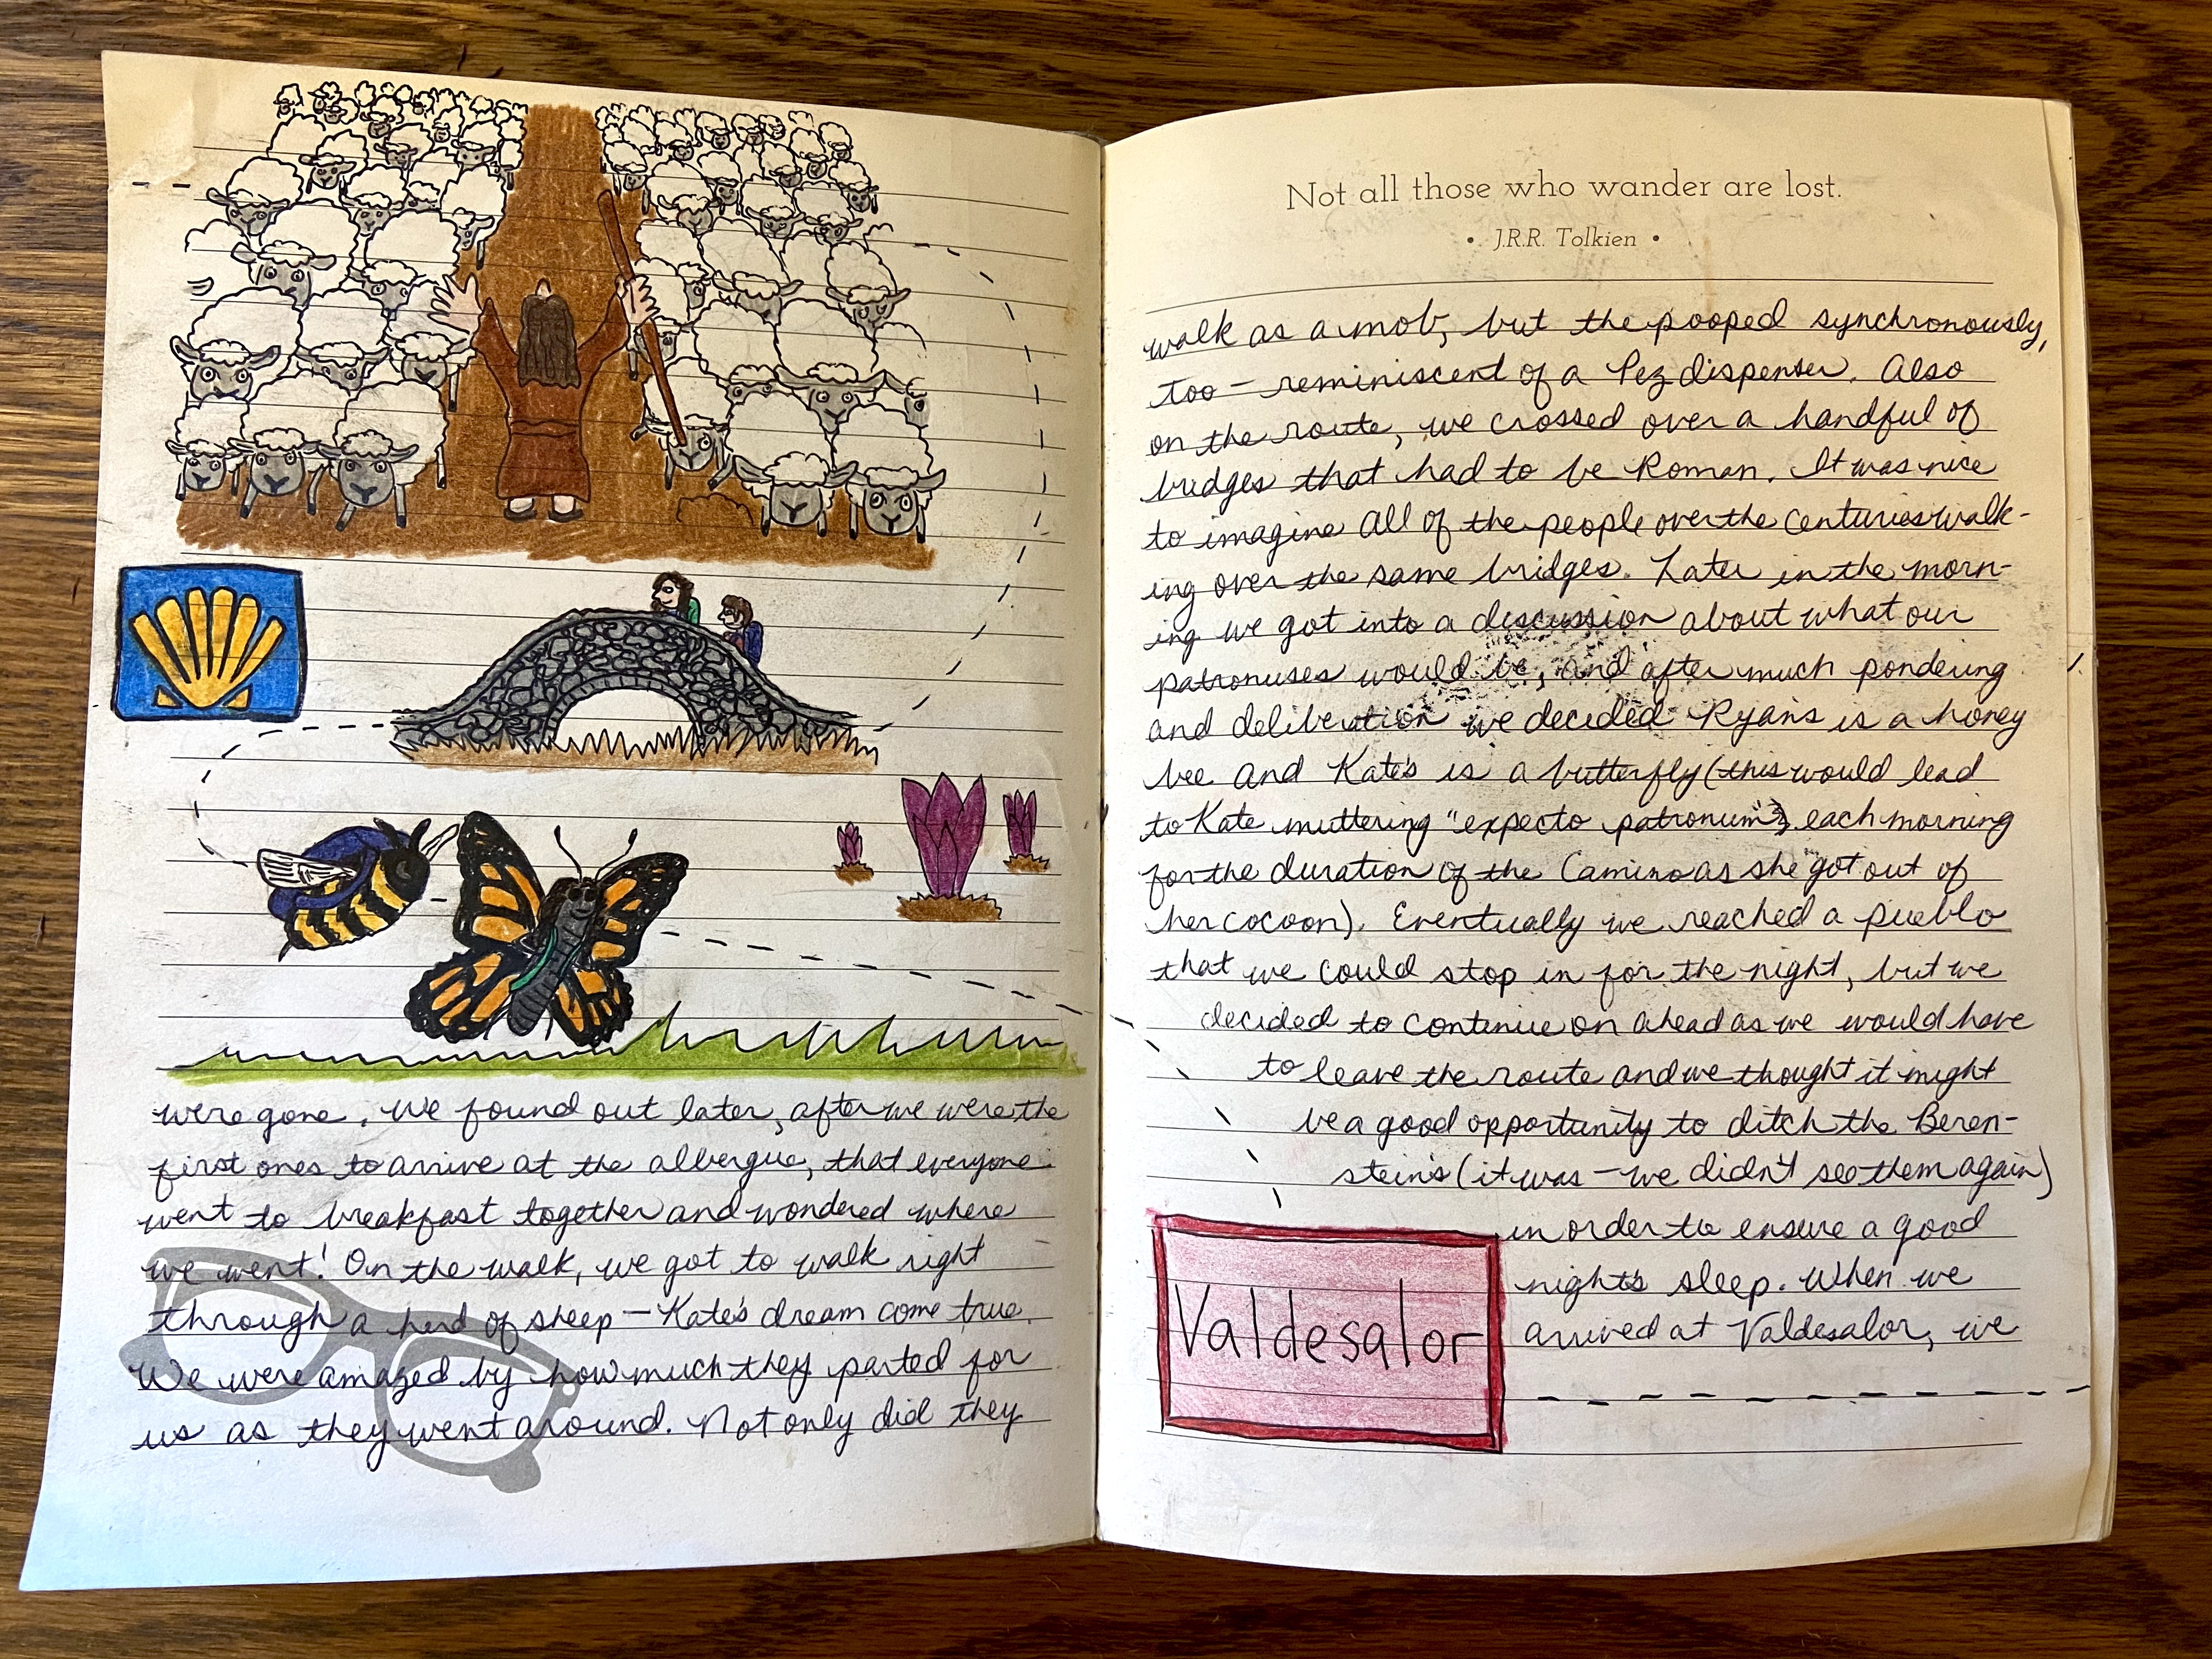 were gone. We found out later, after we were the
first ones to arrive at the albergue, that everyone
went to breakfast together and wondered where
we went! On the walk, we got to walk right
through a herd of sheep — Kate's dream come true.
We were amazed by how much they parted for
us as they went around. Not only did they
Not all those who wander are lost.
• J.R.R. Tolkien •
walk as a mob, but the pooped synchronously,
too — reminiscent of a Pez dispenser. Also
on the route, we crossed over a handful of
bridges that had to be Roman. It was nice
to imagine all of the people over the centuries walk-
ing over the same bridges. Later in the morn-
ing we got into a discussion about what our
patronuses would be, and after much pondering
and deliberation we decided Ryan's is a honey
bee and Kate's is a butterfly (this would lead
to Kate muttering "expecto patronum" each morning
for the duration of the Camino as she got out of
her cocoon). Eventually we reached a pueblo
that we could stop in for the night, but we
decided to continue on ahead as we would have
to leave the route and we thought it might
be a good opportunity to ditch the Beren-
steins (it was — we didn't see them again)
in order to ensure a good
night's sleep. When we
arrived at Valdesalor, we
Valdesalor